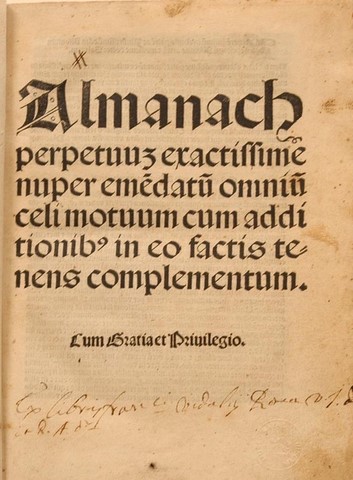 Almanach
perpetuuʒ exactissime
nuper emēdatū omniū
celi motuum cum addi
tionibꝰ in eo factis te⸗
nens complementum.
Cum Gratia et Priuilegio.
Ex libris